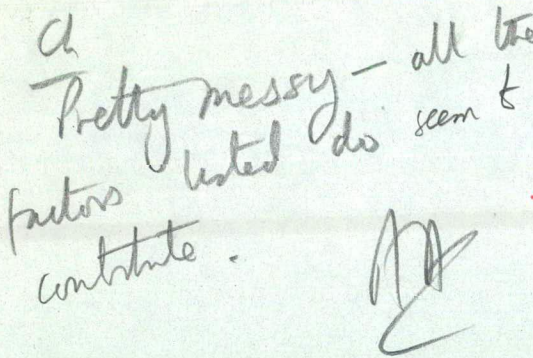 Pretty messy – all the
factors listed do seem to
contribute.